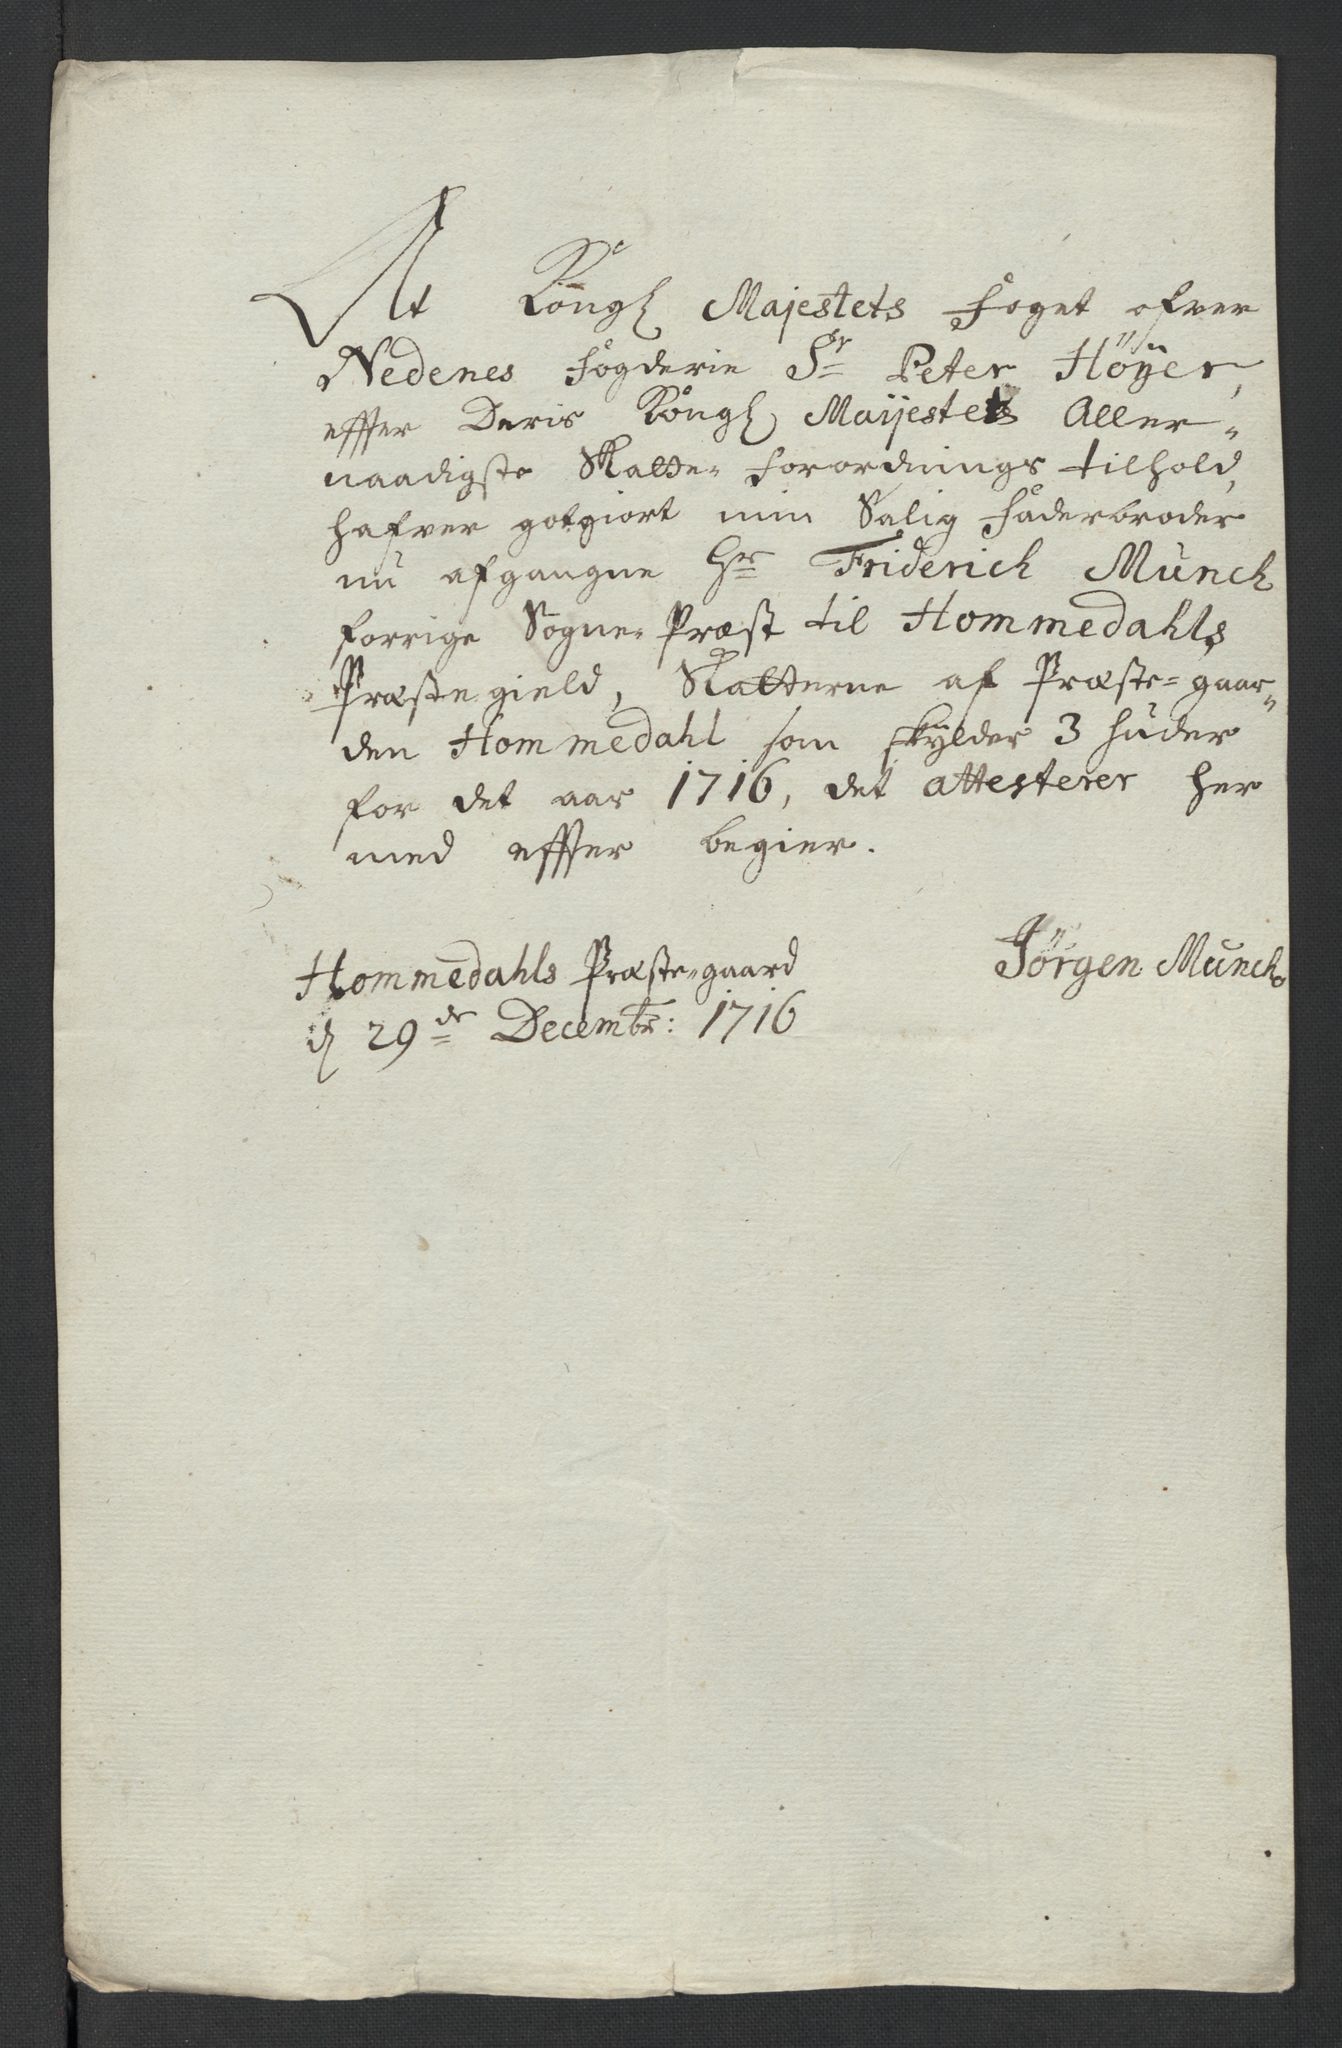 At Kongl Majestets Foget ofver
Nedenes Fogderie Sr Peter Höÿer,
effter Deris Kongl Maijestets Aller-
naadigste Skatte-Forordnings tilhold,
hafver gotgiort min Salig Faderbroder
nu afgangne Hr Friderich Munch
forrige Sogne-Præst til Hommedahls
Præstegield, Skatterne af Præste-gaar-
den Hommedahl som skylder 3 huder
for det aar 1716, det attesterer her
med effter begier.
Hommedahls Præste-gaard
d 29de Decembr: 1716
Jörgen Munch